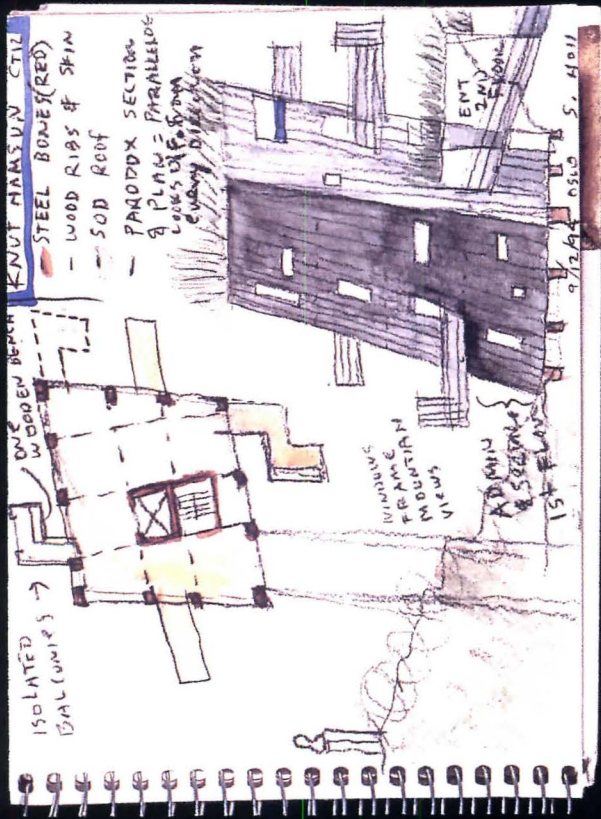 KNUT HAMSUN CTR
- STEEL BONES (RED)
- WOOD RIBS & SKIN
- SOD ROOF
- PARODOX SECTION
& PLAN = PARALELOG
LOOKS DIF FROM
EVERY DIRECTION
ONE
WOODEN BENCH
ISOLATED
BALCONIES →
WINDOWS
FRAME
MOUNTIAN
VIEWS
ENT
2ND
FLOOR
ADMIN
1ST FLOW
9/2/94 OSLO S. HOLL